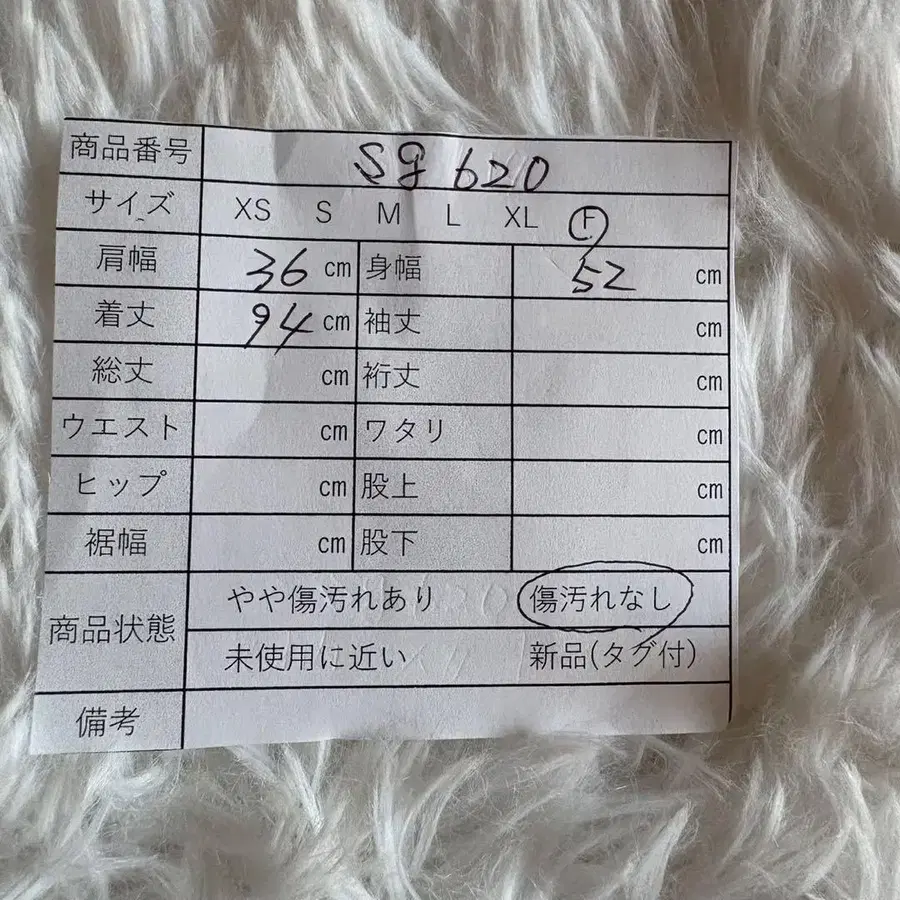 商品番号 sg 620
サイズ XS S M L XL F
肩幅 36 cm 身幅 52 cm
着丈 94 cm 袖丈 cm
総丈 cm 裄丈 cm
ウエスト cm ワタリ cm
ヒップ cm 股上 cm
裾幅 cm 股下 cm
商品状態 やや傷汚れあり 傷汚れなし
未使用に近い 新品(タグ付)
備考